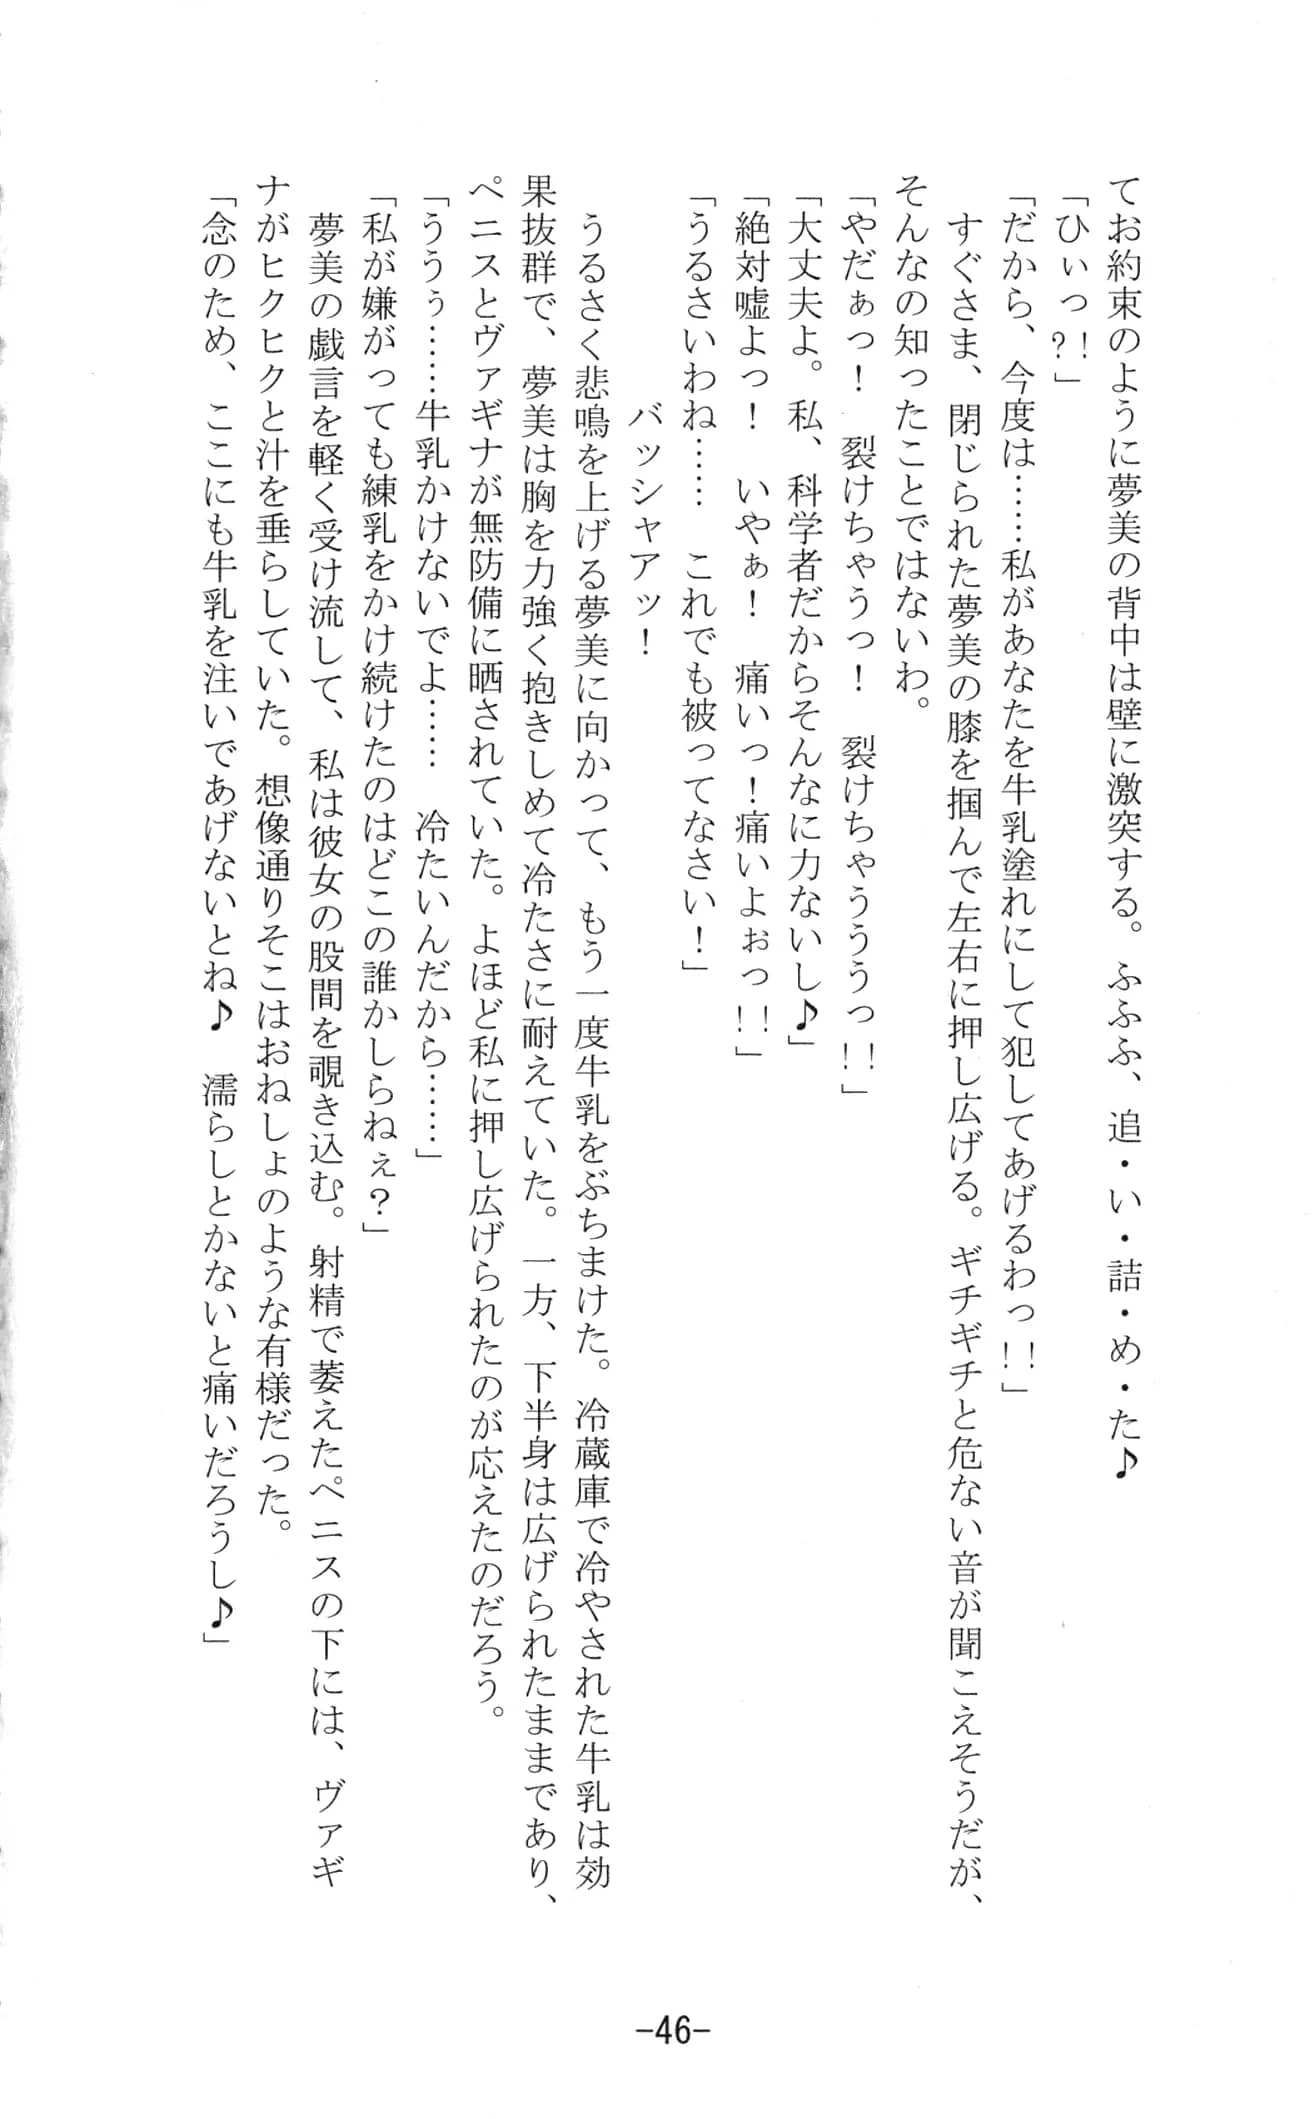 てお約束のように夢美の背中は壁に激突する。ふふふ、追・い・詰・め・た♪
「ひぃっ?!」
「だから、今度は……私があなたを牛乳塗れにして犯してあげるわっ!!」
すぐさま、閉じられた夢美の膝を掴んで左右に押し広げる。ギチギチと危ない音が聞こえそうだが、
そんなの知ったことではないわ。
「やだぁっ!　裂けちゃうっ!　裂けちゃうううっ!!」
「大丈夫よ。私、科学者だからそんなに力ないし♪」
「絶対嘘よっ!　いやぁ!　痛いっ!痛いよぉっ!!」
「うるさいわね……　これでも被ってなさい!」
バッシャアッ!
うるさく悲鳴を上げる夢美に向かって、もう一度牛乳をぶちまけた。冷蔵庫で冷やされた牛乳は効
果抜群で、夢美は胸を力強く抱きしめて冷たさに耐えていた。一方、下半身は広げられたままであり、
ペニスとヴァギナが無防備に晒されていた。よほど私に押し広げられたのが応えたのだろう。
「ううぅ……牛乳かけないでよ……　冷たいんだから……」
「私が嫌がっても練乳をかけ続けたのはどこの誰かしらねぇ?」
夢美の戯言を軽く受け流して、私は彼女の股間を覗き込む。射精で萎えたペニスの下には、ヴァギ
ナがヒクヒクと汁を垂らしていた。想像通りそこはおねしょのような有様だった。
「念のため、ここにも牛乳を注いであげないとね♪　濡らしとかないと痛いだろうし♪」
-46-